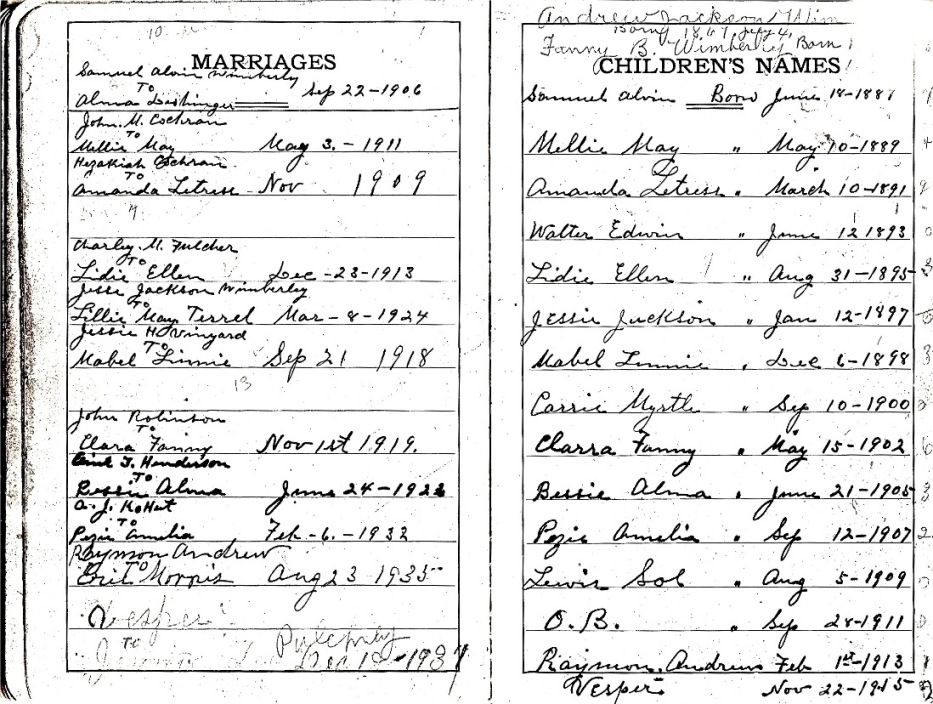 MARRIAGES
Samuel Alvin Wimberly
TO
Alma Sep 22-1906
John. M. Cochran
TO
Mellie May May 3.-1911
Hezakiah Cochran
TO
Amanda Letress Nov 1909
Charley. M. Fulcher
TO
Lidie Ellen Dec-23-1913
Jesse Jackson Wimberly
TO
Lillie May Terrel Mar-8-1924
Jessie H Vinyard
TO
Mabel Linnie Sep 21 1918
13
John Robinson
TO
Clara Fanny Nov 1st 1919.
T. Henderson
TO
Bessie Alma June 24-1922
A. J.
TO
Pezie Amelia Feb-6.-1932
Raymon Andrew
TO
Morris Aug 23 1935
Vesper
TO
Dec 1937
Andrew Jackson Wim
Born 1867 Sept 4,
Fanny B. Wimberley Born
CHILDREN'S NAMES
Samuel Alvin Born June 18-1887
Mellie May " May 10-1889
Amanda Letress " March 10-1891
Walter Edwin " June 12 1893
Lidie Ellen " Aug 31-1895
Jessie Jackson " Jan 12-1897
Mabel Linnie " Dec 6-1898
Carrie Myrtle " Sep 10-1900
Clarra Fanny " May 15-1902
Bessie Alma " June 21-1905
Pezie Amelia " Sep 12-1907
Lewis Sol " Aug 5-1909
O.B. " Sep 28-1911
Raymon. Andrew Feb 1st-1913
Vesper. Nov 22-1915